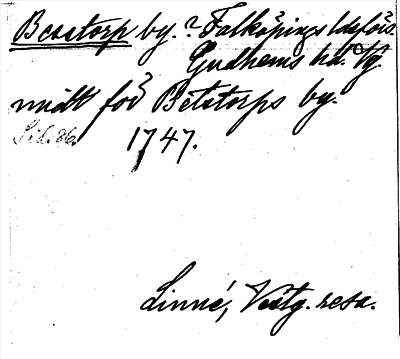 Besstorp by.? Falköpings ldsförs.
Gudhems hd. Vg.
midt för Betstorps by.
Sid. 86.
1747.
Linné, Västg. resa.